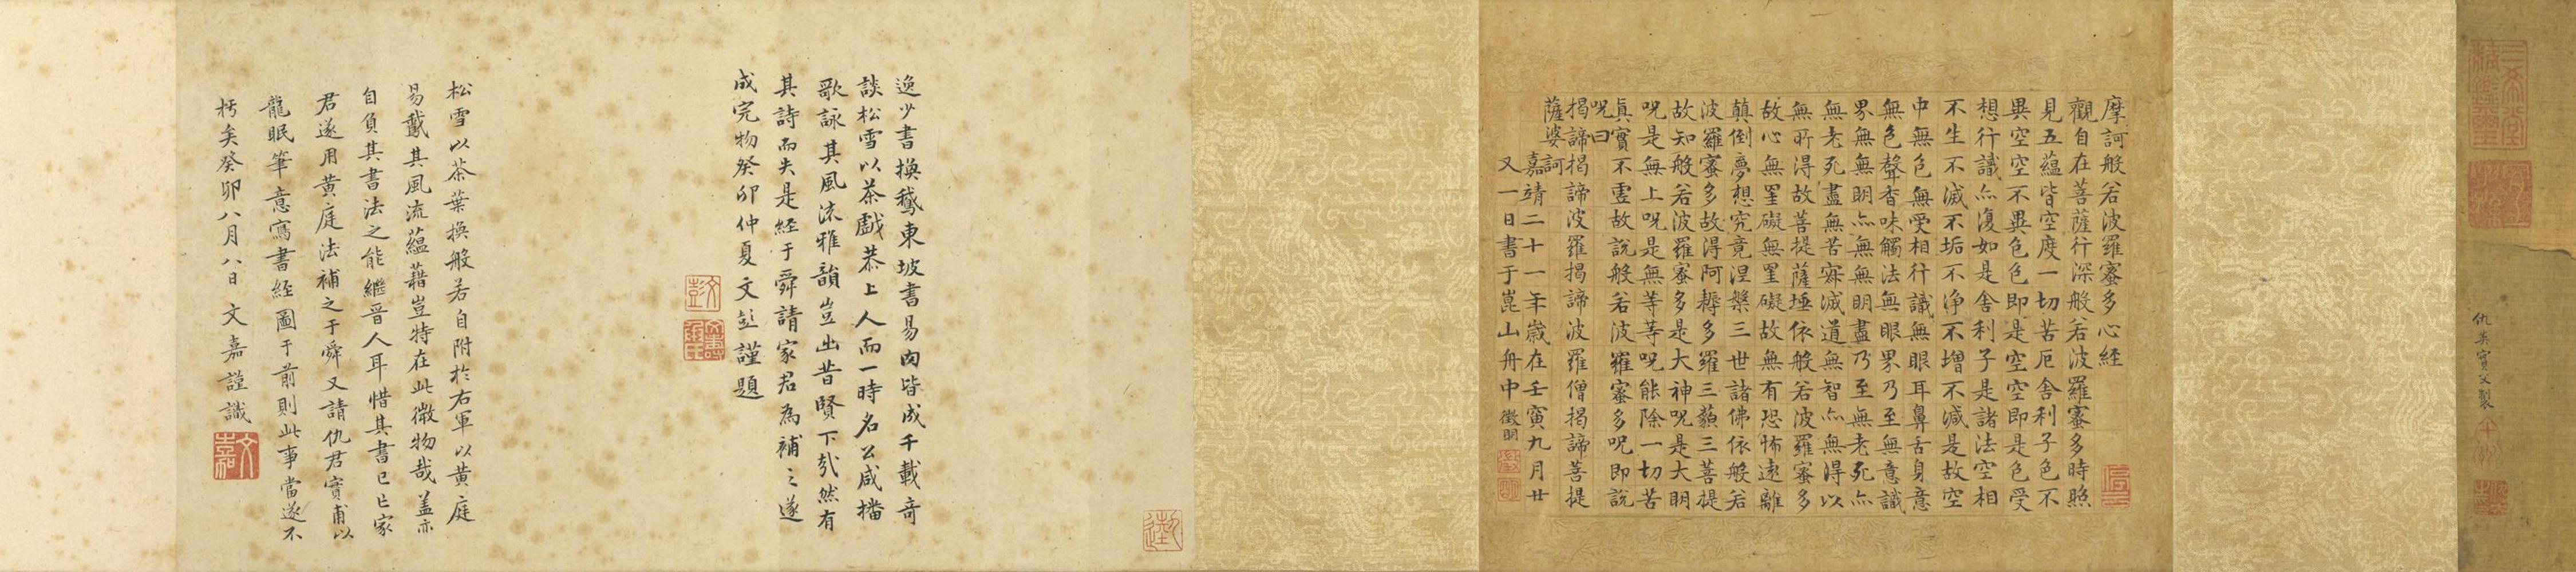 仇英實父製
摩訶般若波羅蜜多心經
觀自在菩薩行深般若波羅蜜多時照
見五蘊皆空度一切苦厄舍利子色不
異空空不異色色即是空空即是色受
想行識亦復如是舍利子是諸法空相
不生不滅不垢不淨不增不減是故空
中無色無受相行識無眼耳鼻舌身意
無色聲香味觸法無眼界乃至無意識
界無無明亦無無明盡乃至無老死亦
無老死盡無苦寂滅道無智亦無得以
無所得故菩提薩埵依般若波羅蜜多
故心無罣礙無罣礙故無有恐怖遠離
顛倒夢想究竟涅槃三世諸佛依般若
波羅蜜多故得阿耨多羅三藐三菩提
故知般若波羅蜜多是大神呪是大明
呪是無上呪是無等等呪能除一切苦
真實不虛故說般若波羅蜜多呪即說
呪曰
揭諦揭諦波羅揭諦波羅僧揭諦菩提
薩婆訶
嘉靖二十一年歲在壬寅九月廿
又一日書于崑山舟中徵明
逸少書換鵝東坡書易肉皆成千載奇
談松雪以茶戲恭上人而一時名公咸播
歌詠其風流雅韻豈出昔賢下哉然有
其詩而失是經于舜請家君為補之遂
成完物癸卯仲夏文彭謹題
文彭
松雪以茶葉換般若自附於右軍以黃庭
易鵞其風流蘊藉豈特在此微物哉蓋亦
自負其書法之能繼晉人耳惜其書已亡家
君遂用黃庭法補之于舜又請仇君實甫以
龍眠筆意寫書經圖于前則此事當遂不
朽矣癸卯八月八日文嘉謹識
文嘉